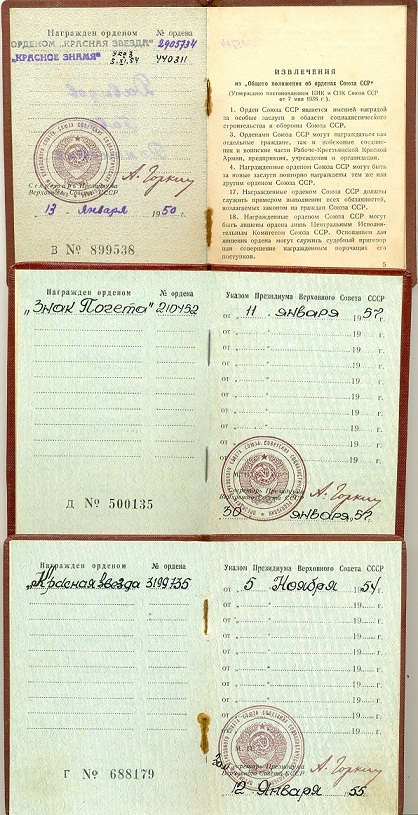 Награжден орденом № ордена
ОРДЕНОМ „КРАСНАЯ ЗВЕЗДА" 2905734
„КРАСНОЕ ЗНАМЯ" УКАЗ 5.XI.54 440311
Секретарь Президиума
Верховного Совета СССР
А. Горкин
13 января 1950 г.
В № 899538
ИЗВЛЕЧЕНИЯ
из „Общего положения об орденах Союза ССР"
(Утверждено постановлением ЦИК и СНК Союза ССР
от 7 мая 1936 г.).
1. Орден Союза ССР является высшей наградой
за особые заслуги в области социалистического
строительства и обороны Союза ССР.
3. Орденами Союза ССР могут награждаться как
отдельные граждане, так и войсковые соедине-
ния и воинские части Рабоче-Крестьянской Красной
Армии, предприятия, учреждения и организации.
6. Награжденные орденом Союза ССР могут быть
за новые заслуги повторно награждены тем же или
другим орденом Союза ССР.
17. Награжденные орденом Союза ССР должны
служить примером выполнения всех обязанностей,
возлагаемых законом на граждан Союза ССР.
18. Награжденные орденом Союза ССР могут
быть лишены его лишь Центральным Исполни-
тельным Комитетом Союза ССР. Основанием для
лишения ордена могут служить судебный приговор
или совершение награжденным порочащих его
поступков.
5
Награжден орденом № ордена
„Знак Почета" 210492
Д № 500135
Указом Президиума Верховного Совета СССР
от „ 11 " января 1957 г.
от „ " 19 г.
от „ " 19 г.
от „ " 19 г.
от „ " 19 г.
от „ " 19 г.
от „ " 19 г.
от „ " 19 г.
от „ " 19 г.
от „ " 19 г.
Секретарь Президиума
Верховного Совета СССР
А. Горкин
30 января 1957 г.
Награжден орденом № ордена
„Красная звезда" 3199735
Г № 688179
Указом Президиума Верховного Совета СССР
от „ 5 " Ноября 1954 г.
от „ " 19 г.
от „ " 19 г.
от „ " 19 г.
от „ " 19 г.
от „ " 19 г.
от „ " 19 г.
от „ " 19 г.
М. П.
Секретарь Президиума
Верховного Совета СССР
А. Горкин
12 Января 1955